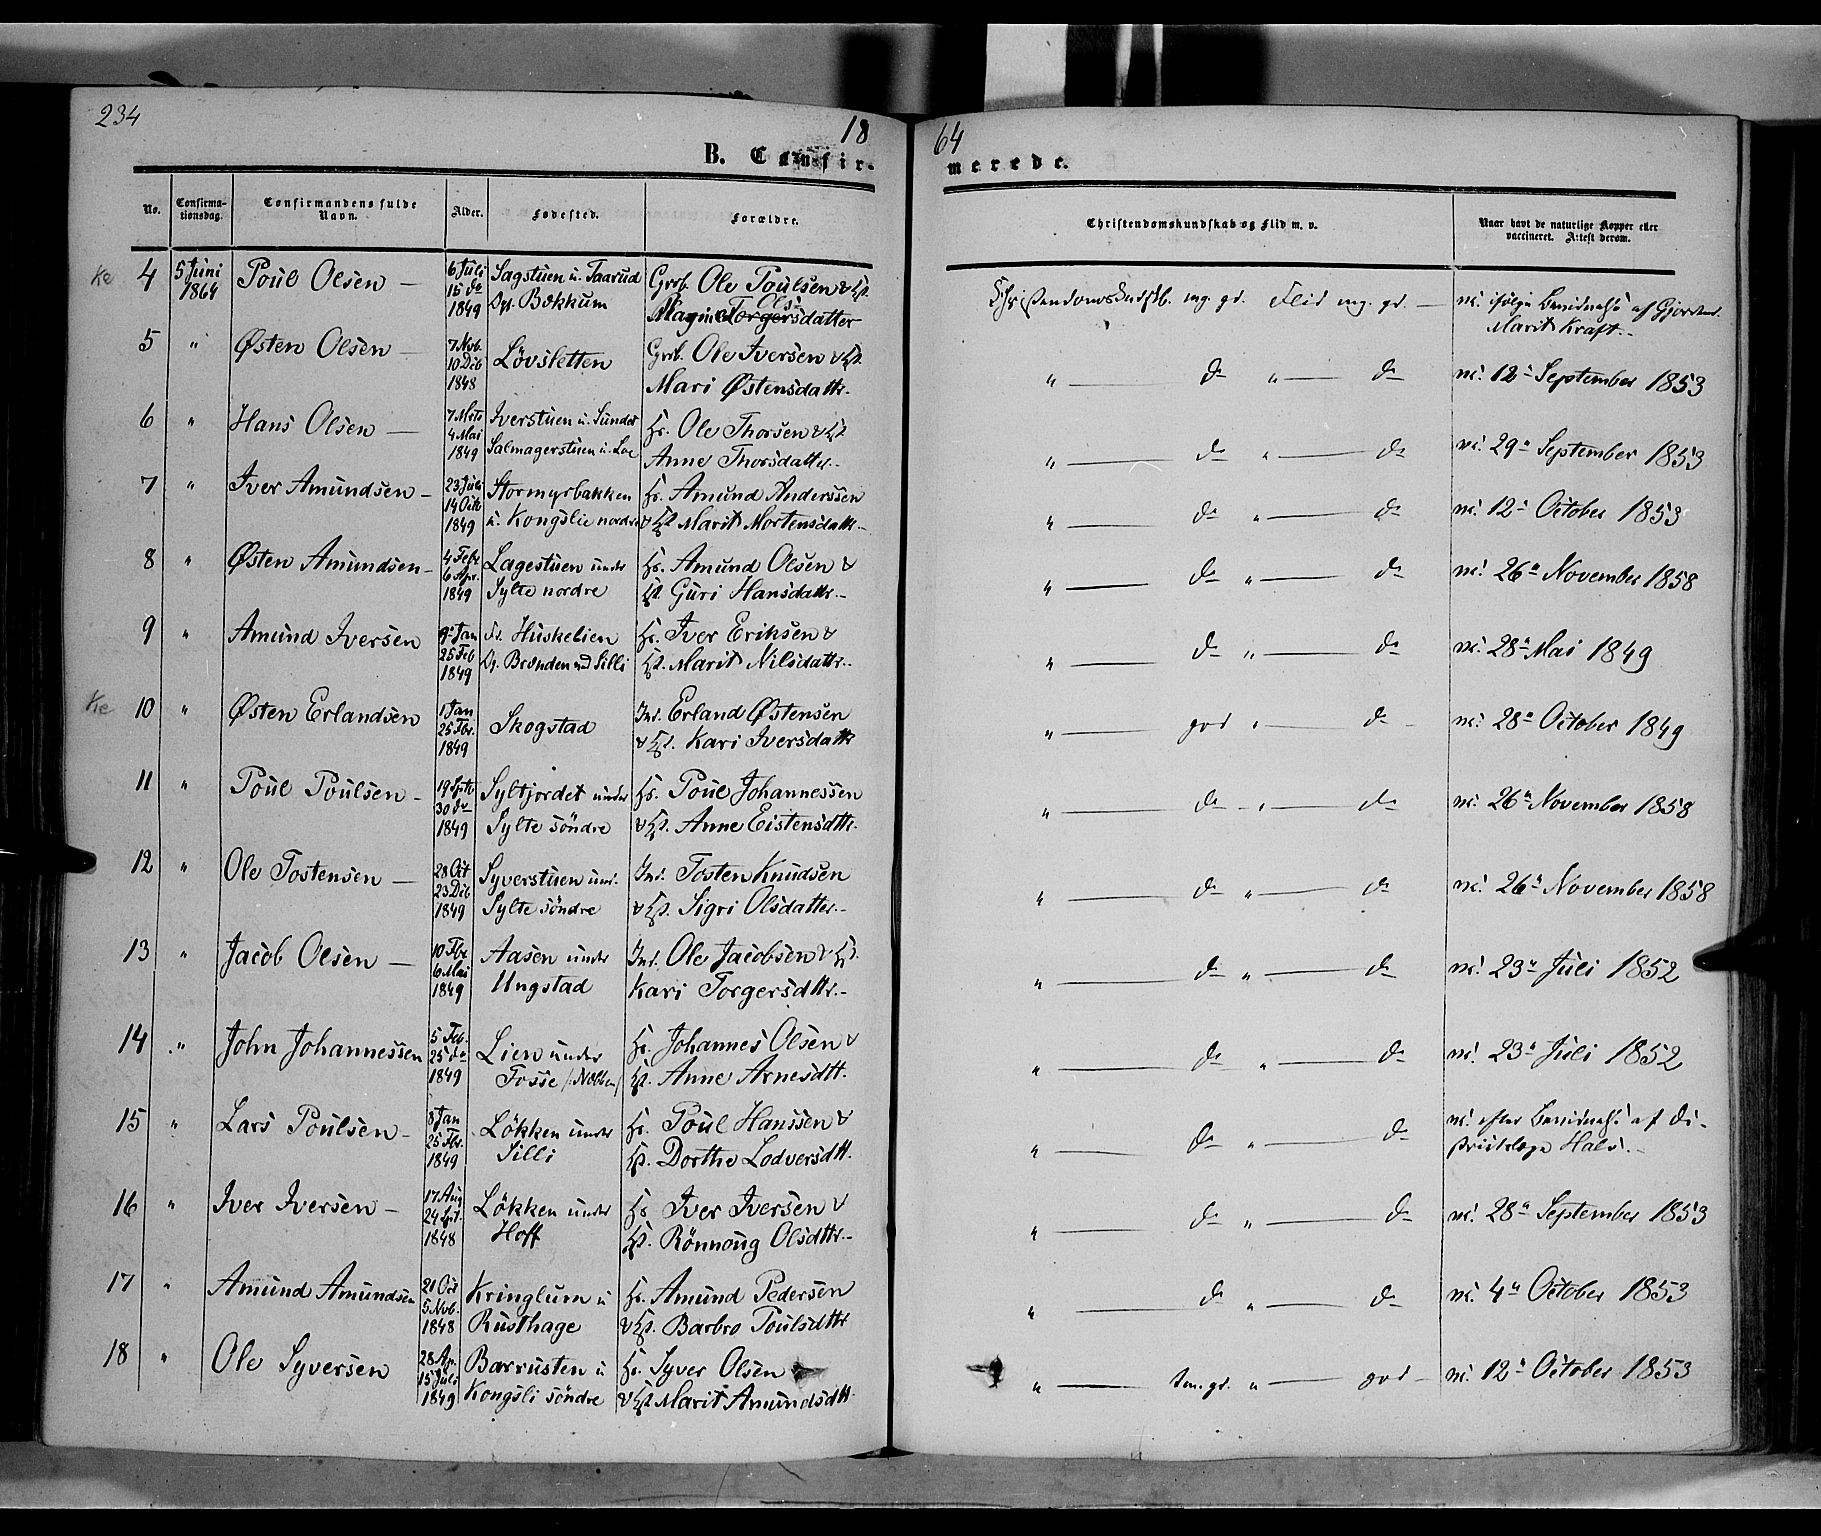 234
18
64
B. Confir-
merede.
No.
Confirma-
tionsdag.
Confirmandens fulde
Navn.
Alder.
Fødested.
Forældre.
Christendomskundskab og Flid m. v.
Naar havt de naturlige Kopper eller
vaccineret. Attest derom.
Ke 4 5 Juni 1864 Poul Olsen — 6 Juli 15 do 1849 Sagstuen u. Taarud Dpt. Bækkum Grb. Ole Poulsen &
Olsdatter
Christendomskundskb. mg. gd. Flid mg. gd. — vc. ifølge af
Marit Kraft.
5 " Østen Olsen — 7 Nvb. 10 Dcb 1848 Lövsletten Grb. Ole Iversen &
Mari Østensdattr.
" — do " — do vc. 12te September 1853
6 " Hans Olsen — 7 Mrts 4 Mai 1849 Iverstuen u. Sundet Salmagerstuen u. Loe Hs. Ole Thorsen &
Anne Thorsdatter.
" — do " — do vc. 29de September 1853
7 " Iver Amundsen — 23 Juli 14 Octb 1849 Stormyrbakken u. Kongslie nordre Hs. Amund Anderssen
& Marit Mortensdattr.
" — do " — do vc. 12te October 1853
8 " Østen Amundsen — 4 Febr 6 Apr. 1849 Lagestuen under Sylte nordre Hs. Amund Olsen &
Guri Hansdattr.
" — do " — do vc. 26de November 1858
9 " Amund Iversen 9 Jan 25 Feb 1849 Huskelien Silli Hs. Iver Eriksen &
Marit Nilsdattr.
" — do " — do vc. 28de Mai 1849
Ke 10 " Østen Erlandsen 1 Jan 25 Fbr. 1849 Skogstad Ind. Erland Østensen
& Kari Iversdattr
" — god " — do vc. 28de October 1849
11 " Poul Poulsen — 19 Sptb 30 do 1849 Syltjordet under Sylte söndre Hs. Poul Johannessen
& Anne Eistensdttr.
" — do " — do vc. 26de November 1858
12 " Ole Tostensen — 28 Oct 23 Dcb 1849 Syverstuen und. Sylte söndre Ind. Tosten Knudsen
& Sigri Olsdatter.
" — do " — do vc. 26de November 1858
13 " Jacob Olsen — 10 Fbr 6 Mai 1849 Aasen under Ungstad Ind. Ole Jacobsen &
Kari Torgersdttr.
" — do " — do vc. 23de Juli 1852
14 " John Johannessen 5 Feb. 25 do 1849 Lien under Fosse Hs. Johannes Olsen &
Anne Arnesdtt.
" — do " — do vc. 23de Juli 1852
15 " Lars Poulsen — 8 Jan 25 Fbr. 1849 Løkken under Silli Hs. Poul Hanssen &
Dorthe Lodversdtt.
" — do " — do vc. efter af Di-
strictslæge Hals.
16 " Iver Iversen — 17 Aug 24 Spt. 1848 Løkken under Hoff Hs. Iver Iversen &
Rönnoug Olsdttr.
" — do " — do vc. 28de September 1853
17 " Amund Amundsen 21 Oct 5 Nvb. 1848 Kringlum u Rusthage Hs. Amund Pedersen
& Barbro Poulsdttr
" — do " — do vc. 4de October 1853
18 " Ole Syversen 28 Ap. 15 Juli 1849 Barrusten u Kongsli söndre Hs. Syver Olsen
& Marit Amundsdtt.
" — tm. gd. " — god — vc. 12te October 1853